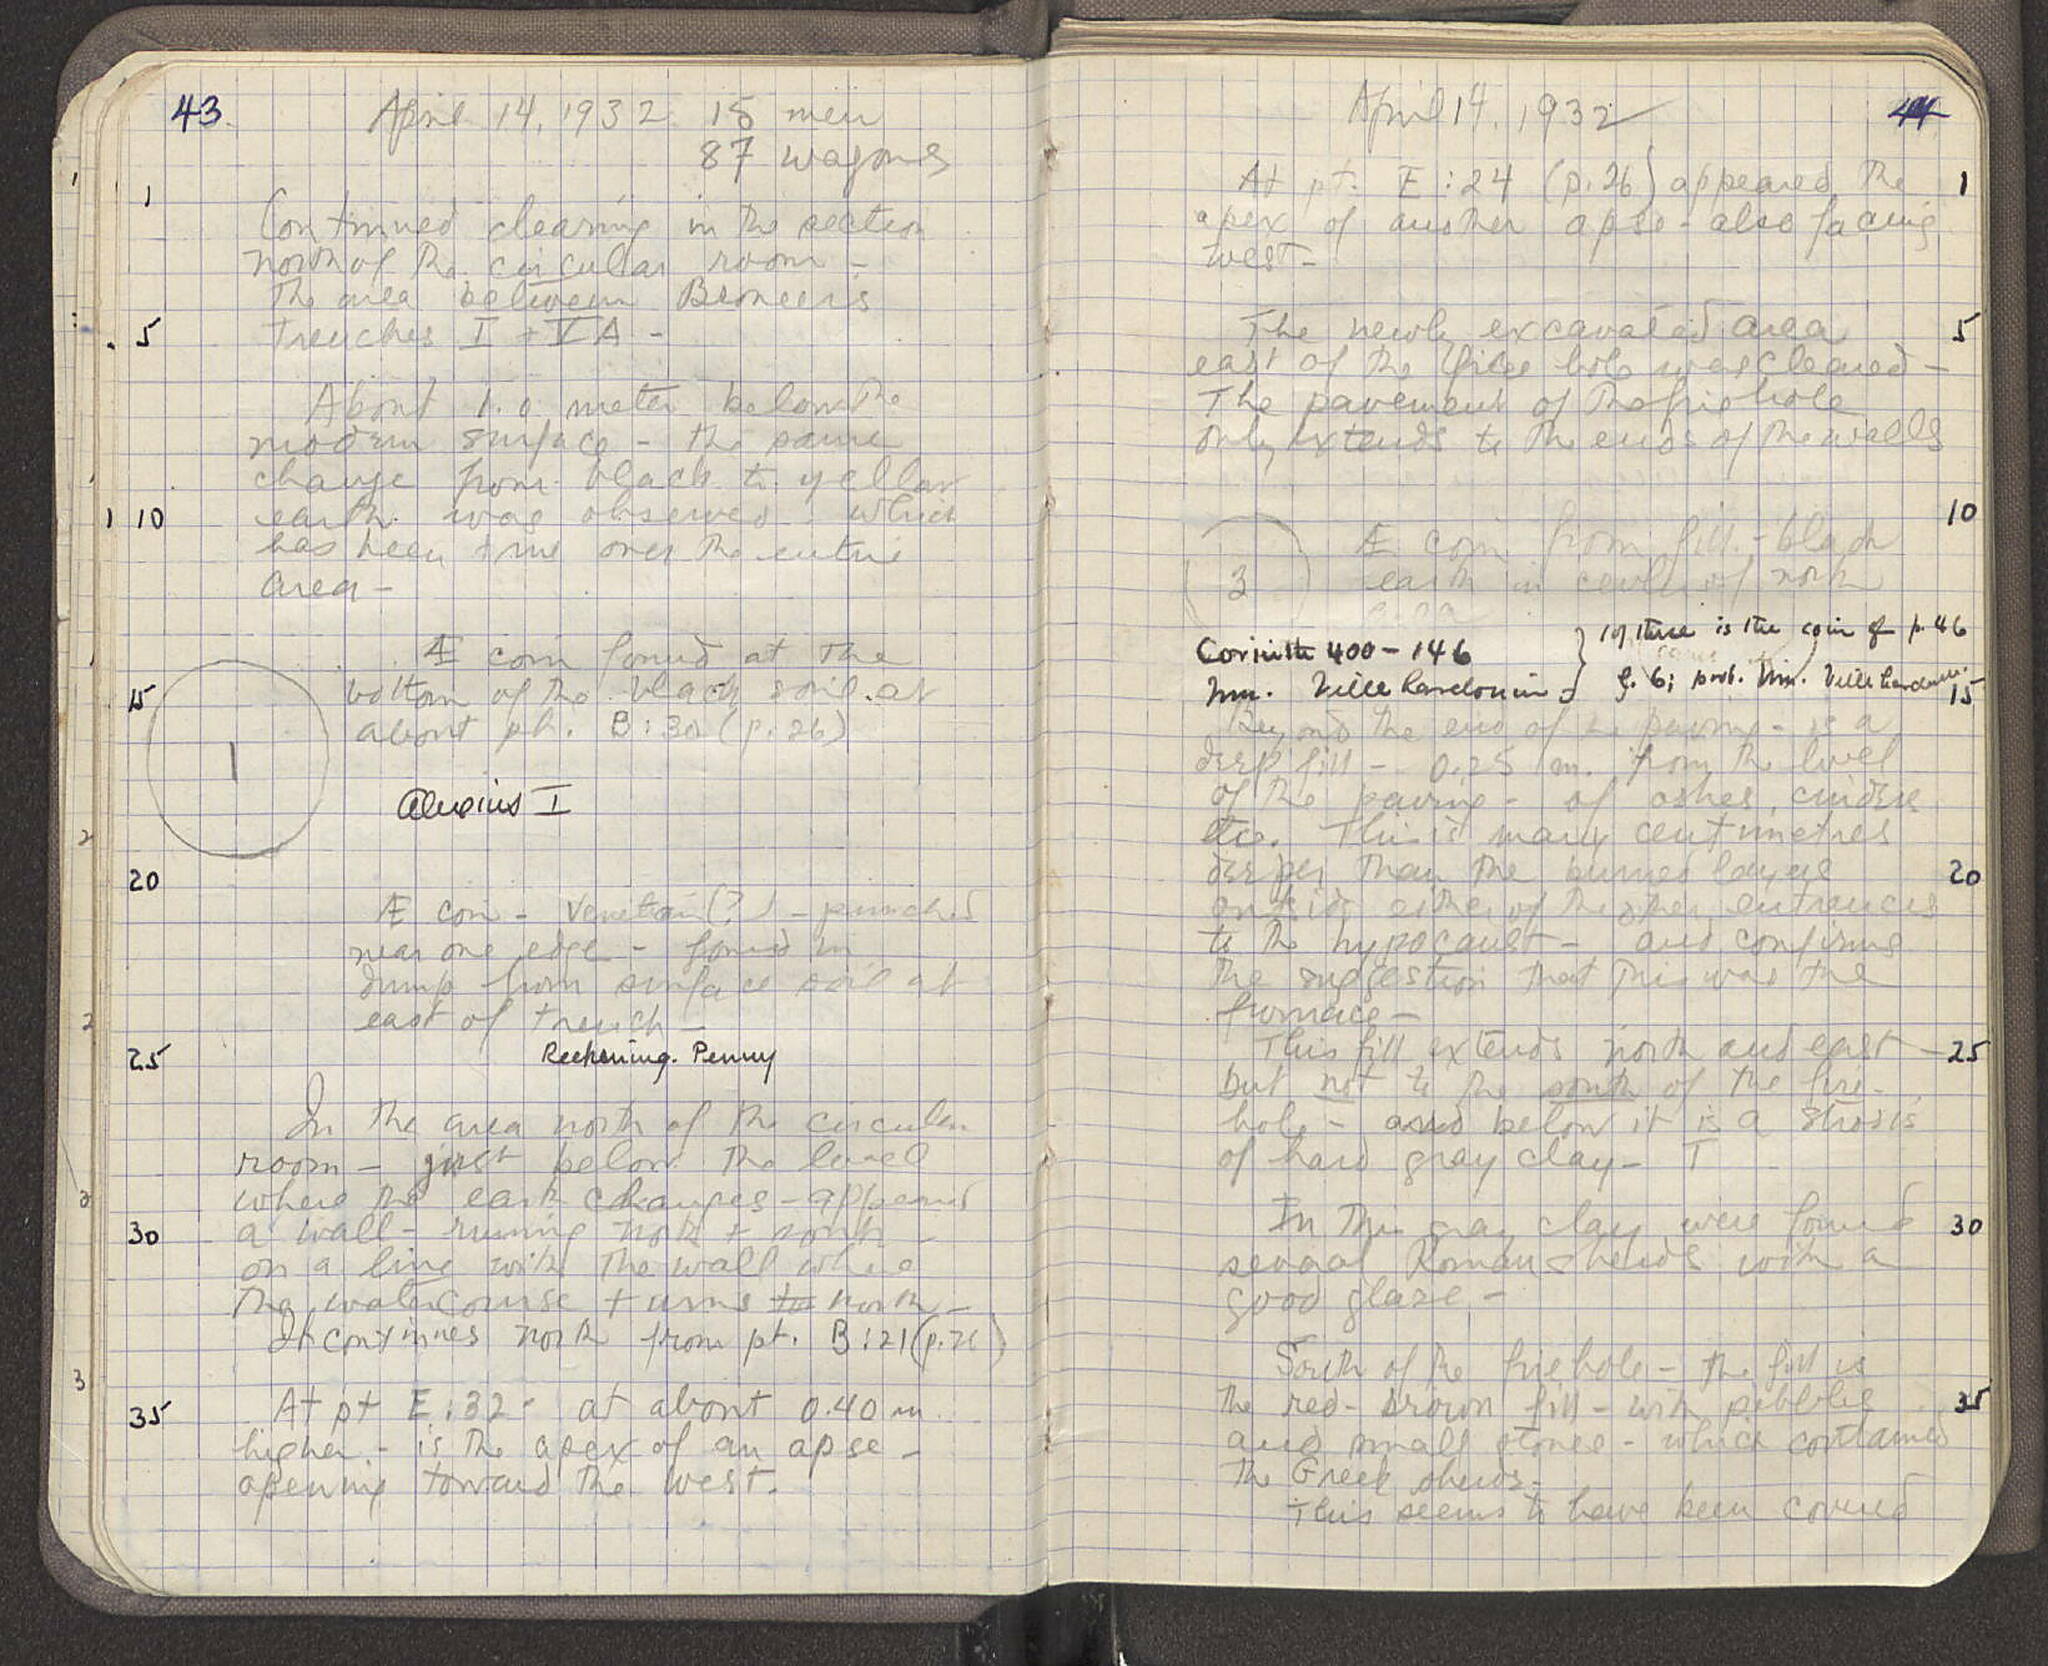 43. April 14, 1932 15 men
87 wagons
1
Continued clearing in the section
north of the circular room -
The area between Broneer's
5
Trenches I + VA -
About 1.0 meter below the
modern surface - the same
change from black to yellow
10
earth was observed: which
has been true over the entire
area -
Æ coin found at the
15
bottom of the black soil at
about pt. B:30 (p. 26)
1
Alexius I
20
Æ coin - Venetian (?) - punched
near one edge - found in
dump from surface soil at
east of trench -
25
Reckoning. Penny
In the area north of the circular
room - just below the level
where the earth changes - appeared
30
a wall - running north + south -
on a line with the wall where
the watercourse turns to north -
It continues north from pt. B:21 (p. 26)
35
At pt E:32 - at about 0.40 m
higher - is the apex of an apse -
opening toward the west.
April 14, 1932
44
At pt. E:24 (p. 26) appeared the
1
apex of another apse - also facing
west -
The newly excavated area
5
east of the fire hole was cleared -
The pavement of the fire hole
only extends to the ends of the walls
10
Æ coin from fill - black
3
earth in center of north
area
Corinth 400 - 146
Imm. Villehardouin
} is the coin of p. 46
g. 6; prob. Imm. Villehardouin.
15
Beyond the end of the paving - is a
deep fill - 0.25 m. from the level
of the paving - of ashes, cinders
etc. This is many centimetres
deeper than the burned layers
20
outside either of the other entrances
to the hypocaust - and confirms
the suggestion that this was the
furnace -
This fill extends north and east -
25
but not to the south of the fire-
hole - and below it is a strosis
of hard gray clay -
In this gray clay were found
30
several Roman sherds with a
good glaze -
South of the fire hole - the fill is
the red-brown fill - with pebbles
35
and small stones - which contained
the Greek sherds -
This seems to have been covered